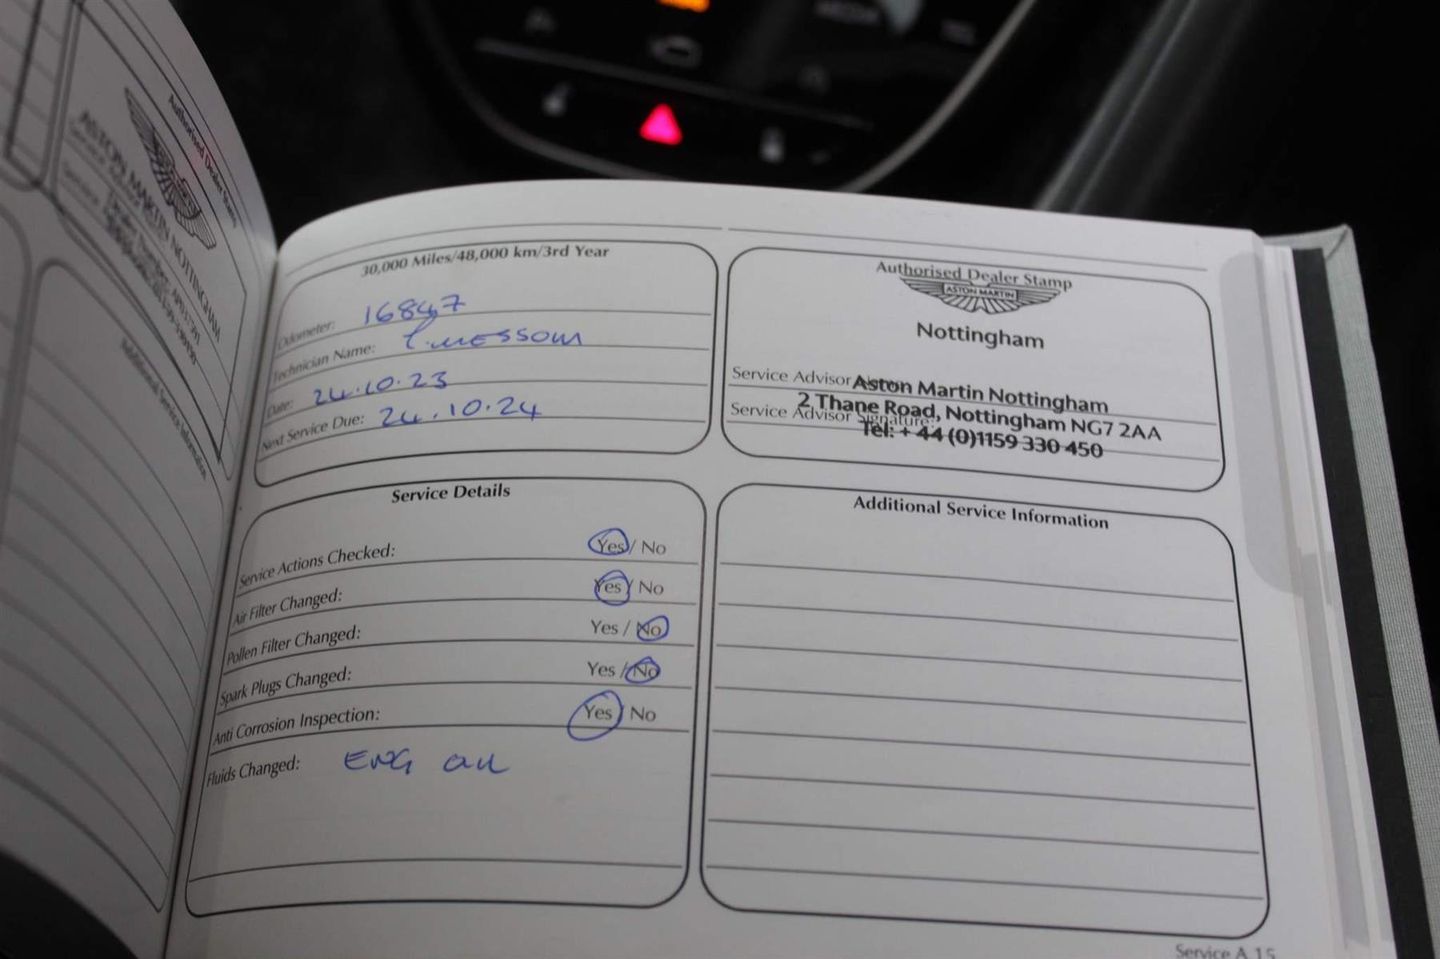 Authorised Dealer Stamp
ASTON MARTIN NOTTINGHAM
Additional Service Information
30,000 Miles/48,000 km/3rd Year
Odometer: 16847
Technician Name:
Date: 24.10.23
Next Service Due: 24.10.24
Authorised Dealer Stamp
ASTON MARTIN
Nottingham
Service Advisor
Aston Martin Nottingham
2 Thane Road, Nottingham NG7 2AA
Service Advisor Signature:
Tel: + 44 (0)1159 330 450
Service Details
Service Actions Checked: Yes / No
Air Filter Changed: Yes / No
Pollen Filter Changed: Yes / No
Spark Plugs Changed: Yes / No
Anti Corrosion Inspection: Yes / No
Fluids Changed: ENG OIL
Additional Service Information
Service A 15